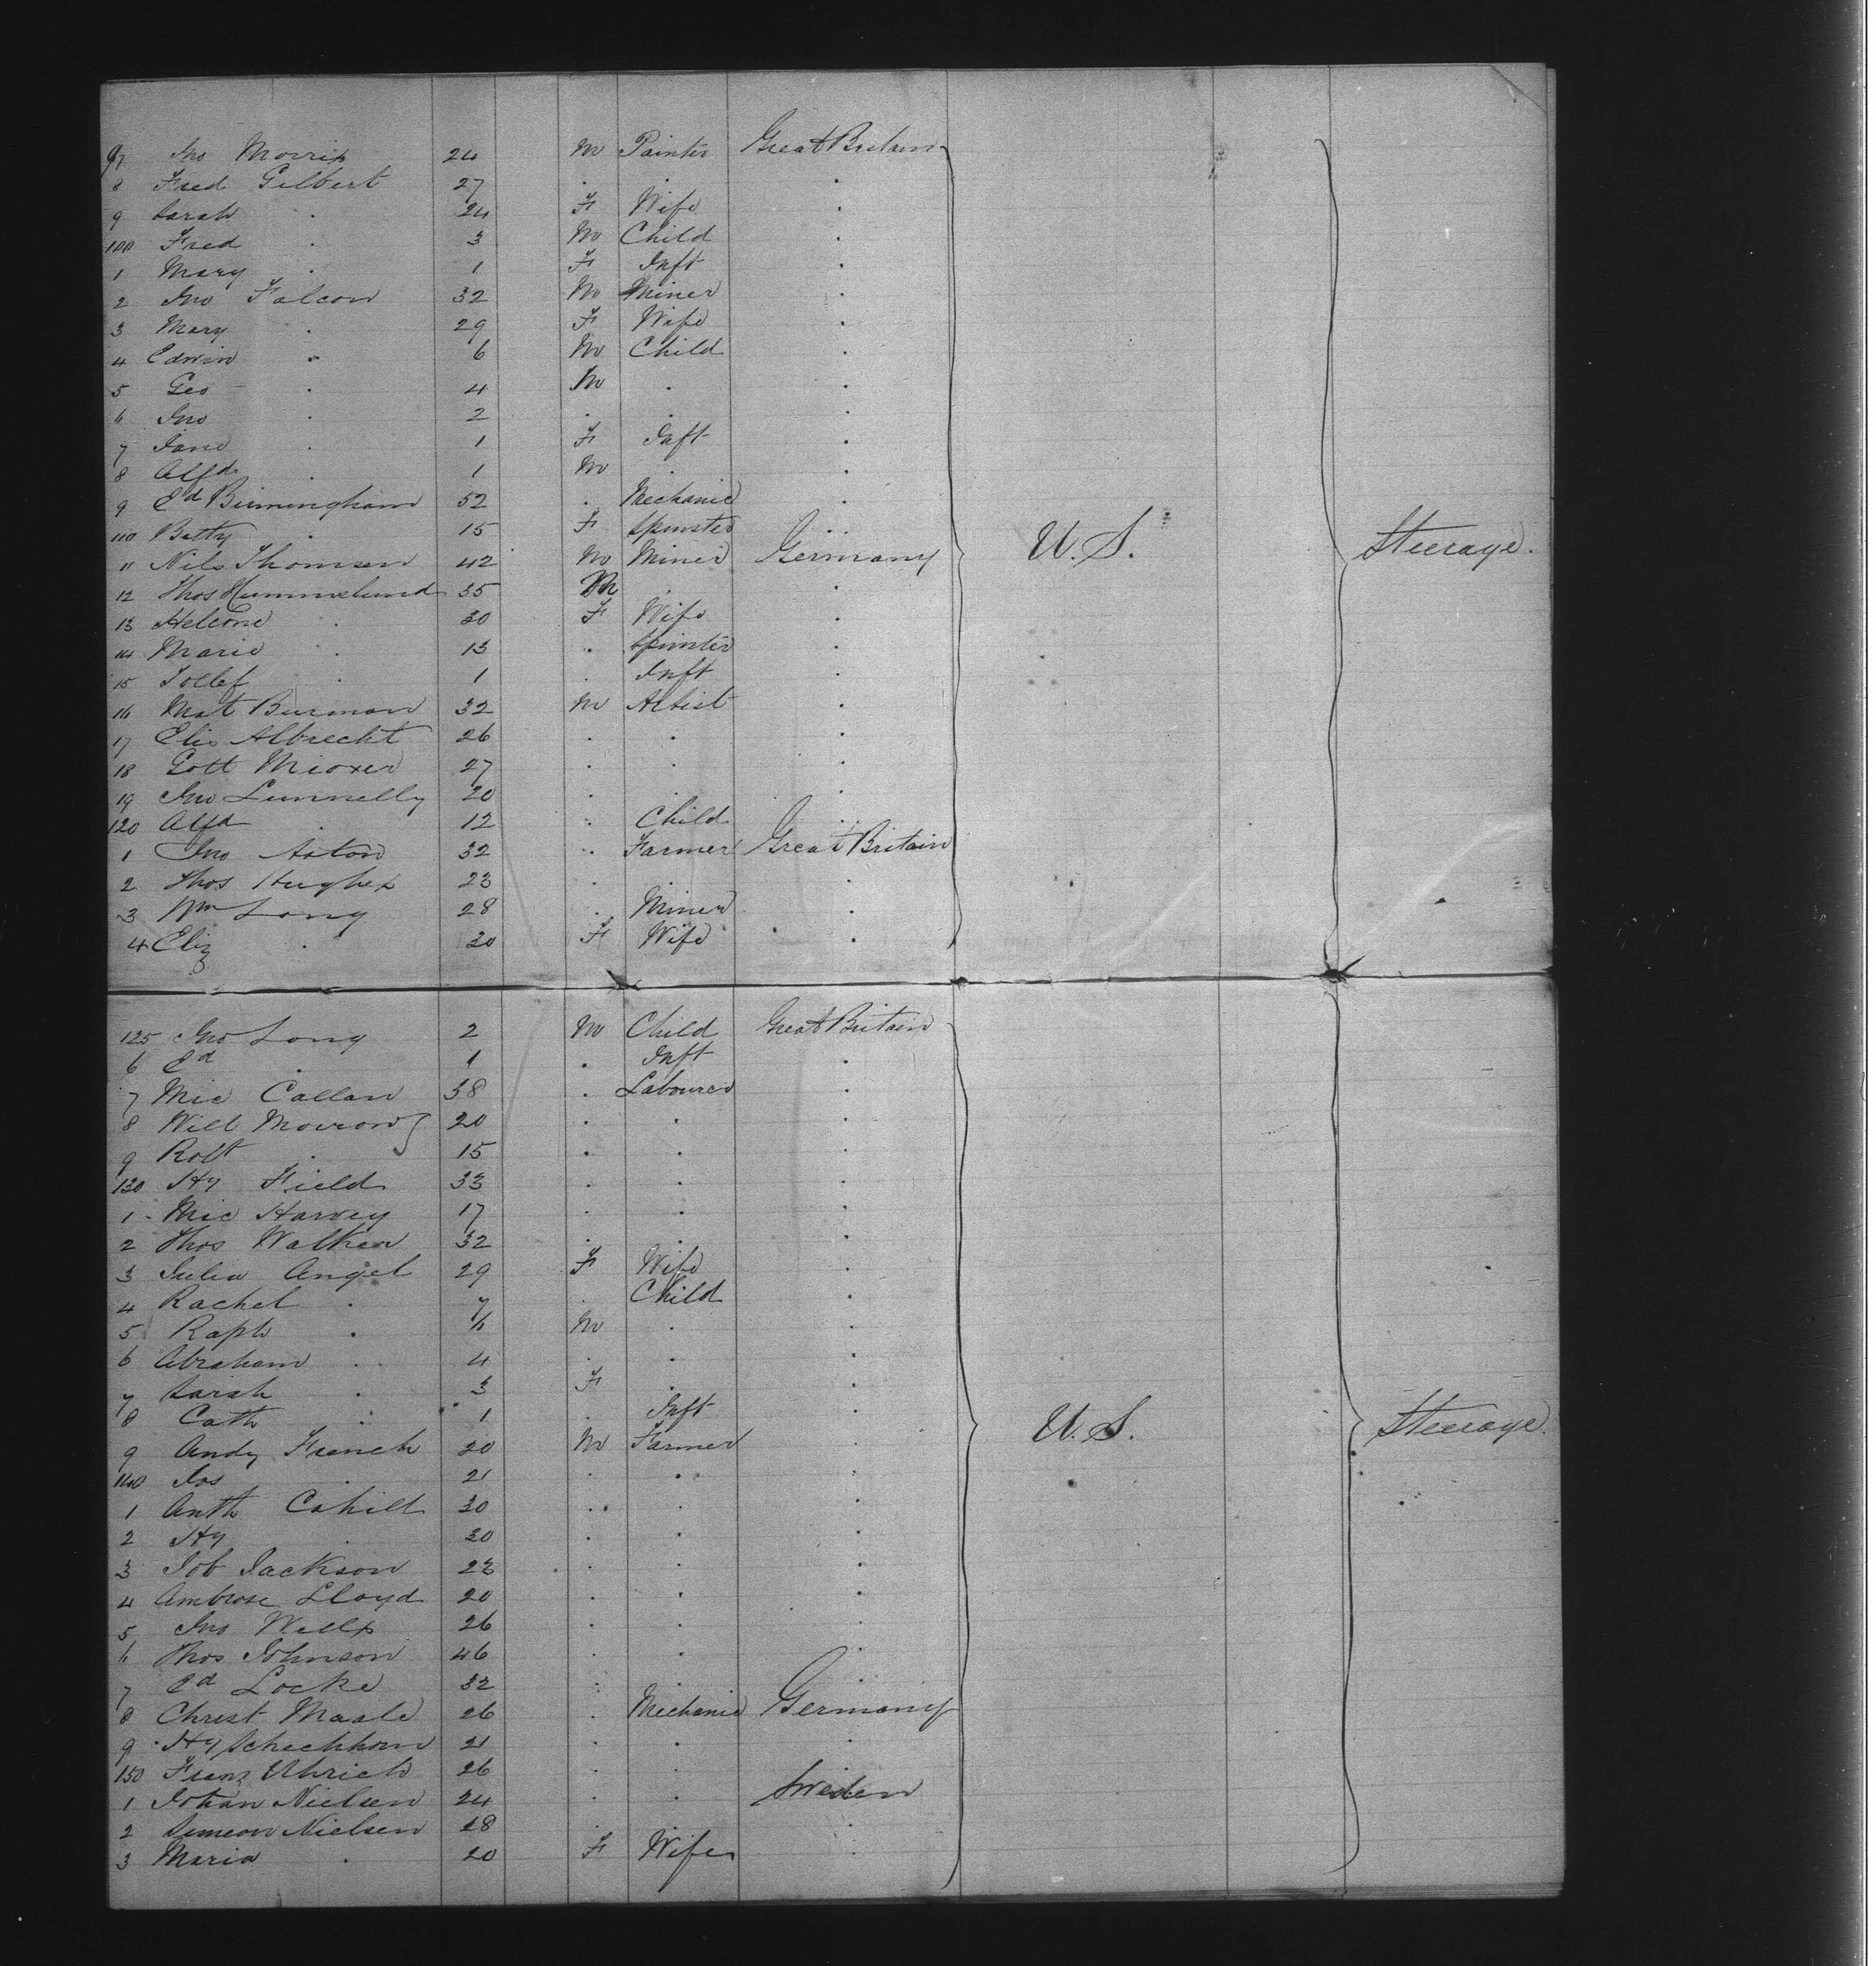 97 Jno Morris 24 M Painter Great Britain
8 Fred Gilbert 27 . . .
9 Sarah . 24 F Wife .
100 Fred . 3 M Child .
1 Mary . 1 F Inft .
2 Jno Falcon 32 M Miner .
3 Mary . 29 F Wife .
4 Edwin . 6 M Child .
5 Geo . 4 M . .
6 Jno . 2 . . .
7 Jane . 1 F Inft .
8 Alfd . 1 M . .
9 Ed Birmingham 52 . Mechanic .
110 Betty . 15 F Spinster . .
11 Nils Thomsen 42 M Miner Germany U.S. Steerage.
12 Thos Hummelund 35 M . .
13 Helene . 30 F Wife .
14 Marie . 13 . Spinster .
15 Tollef . 1 . Inft .
16 Mat Burman 32 M Artist .
17 Elis Albrecht 26 . . .
18 Gott 27 . . .
19 Jno Lunnelly 20 . . .
120 Alfd . 12 . Child . .
1 Jno Aston 32 . Farmer Great Britain
2 Thos Hughes 23 . . .
3 Wm Long 28 . Miner .
4 Eliz . 20 F Wife .
125 Jno Long 2 M Child Great Britain
6 Ed . 1 . Inft .
7 Mic Callan 38 . Labourer .
8 Will Morrow 20 . . .
9 Robt . 15 . . .
130 Hy Field 33 . . .
1 Mic Harvey 17 . . .
2 Thos Walker 32 . . .
3 Julia Angel 29 F Wife .
4 Rachel . 7 . Child .
5 Raph . 6 M . .
6 Abraham . 4 . . .
7 Sarah . 3 F . .
8 Cath . 1 . Inft .
9 Andy French 20 M Farmer . U.S. Steerage.
140 Jos . 21 . . .
1 Anth Cahill 30 . . .
2 Hy . 20 . . .
3 Job Jackson 22 . . .
4 Ambrose Lloyd 20 . . .
5 Jno Wells 26 . . .
6 Thos Johnson 46 . . .
7 Ed Locke 32 . . .
8 Christ Maale 26 . Mechanic Germany
9 Hy Schechhorn 21 . . .
150 Franz Uhrich 26 . .
1 Johan Nielsen 24 . . Sweden
2 Simeon Nielsen 28 . . .
3 Maria . 20 F Wife .